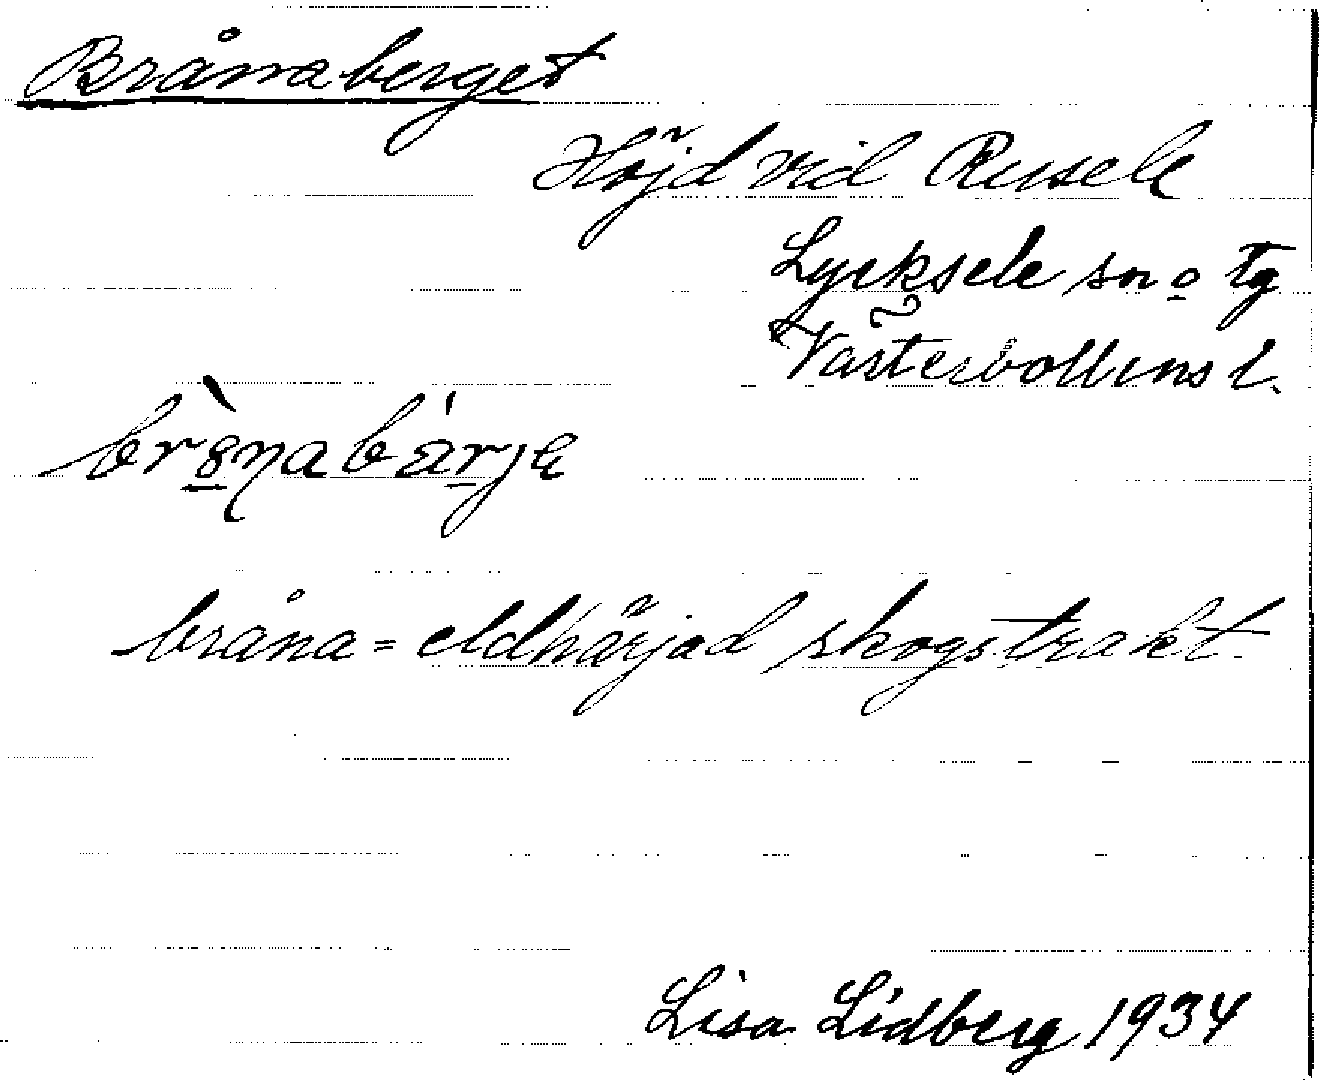 Brånaberget
Höjd vid Rusele
Lycksele sn o tg
Västerbottens l.
bråna = eldhärjad skogstrakt.
Lisa Lidberg 1934